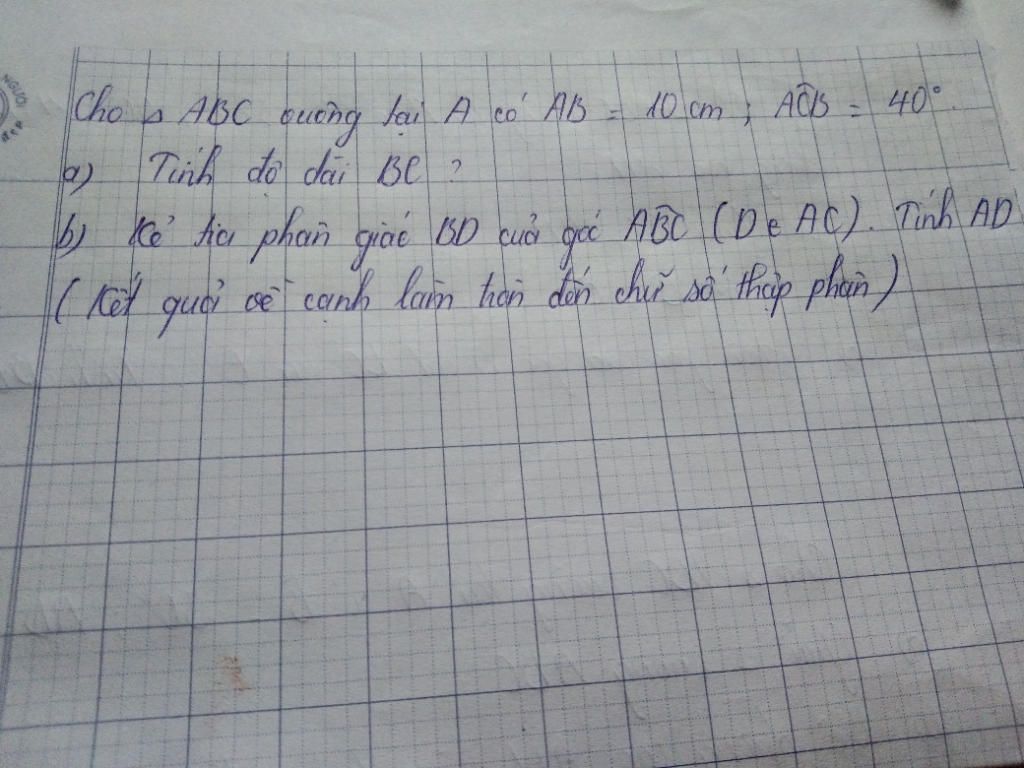 Cho △ ABC vuông tại A có AB = 10 cm ; AĈB = 40°.
a) Tính độ dài BC ?
b) Kẻ tia phân giác BD của góc ABC (D ∈ AC). Tính AD
(Kết quả về cạnh làm tròn đến chữ số thập phân)
NGƯỜI
đẹp